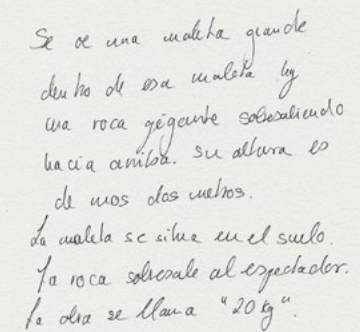 Se ve una maleta grande
dentro de esa maleta hay
una roca gigante sobresaliendo
hacia arriba. Su altura es
de unos dos metros.
La maleta se situa en el suelo.
La roca sobresale al espectador.
La obra se llama "20 kg".